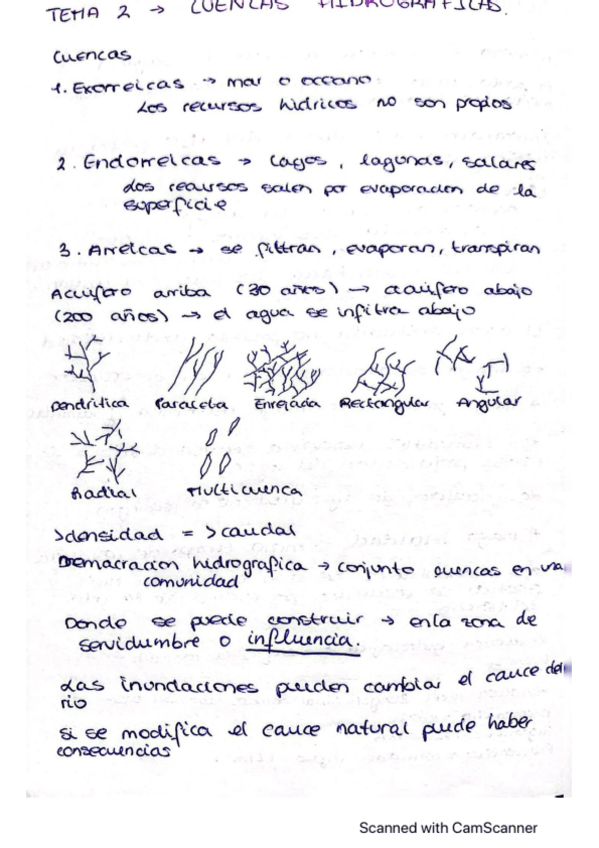 TEMA 2 → CUENCAS HIDROGRAFICAS.
Cuencas
1. Exorreicas → mar o oceano
Los recursos hidricos no son propios
2. Endorreicas → Lagos, lagunas, salares
Los recursos salen por evaporacion de la
superficie
3. Arreicas → se filtran, evaporan, transpiran
Acuifero arriba (30 años) → acuifero abajo
(200 años) → el agua se infiltra abajo
Dendritica Paralela Enrejada Rectangular Angular
Radial Multicuenca
>densidad = >caudal
Demarcacion hidrografica → conjunto cuencas en una
comunidad
Donde se puede construir → en la zona de
servidumbre o influencia.
Las inundaciones pueden cambiar el cauce del
rio
si se modifica el cauce natural puede haber
consecuencias
Scanned with CamScanner